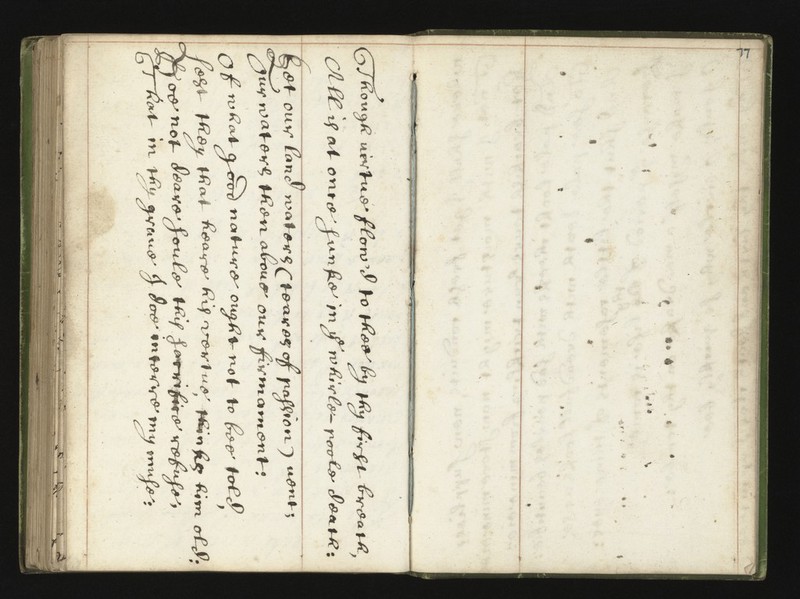 Though uirtue flow'd to thee by thy first breath,
All is at once sunke in yͤ whirle-poole death:
Let our land waters (teares of passion) uent;
Our waters then aboue our firmament:
Of what good nature ought not to bee told,
Lest they that heare his vertue, thinke him old:
Doe not deare soule thy sacrifice refuse;
That in thy graue I doe interre my muse:
77